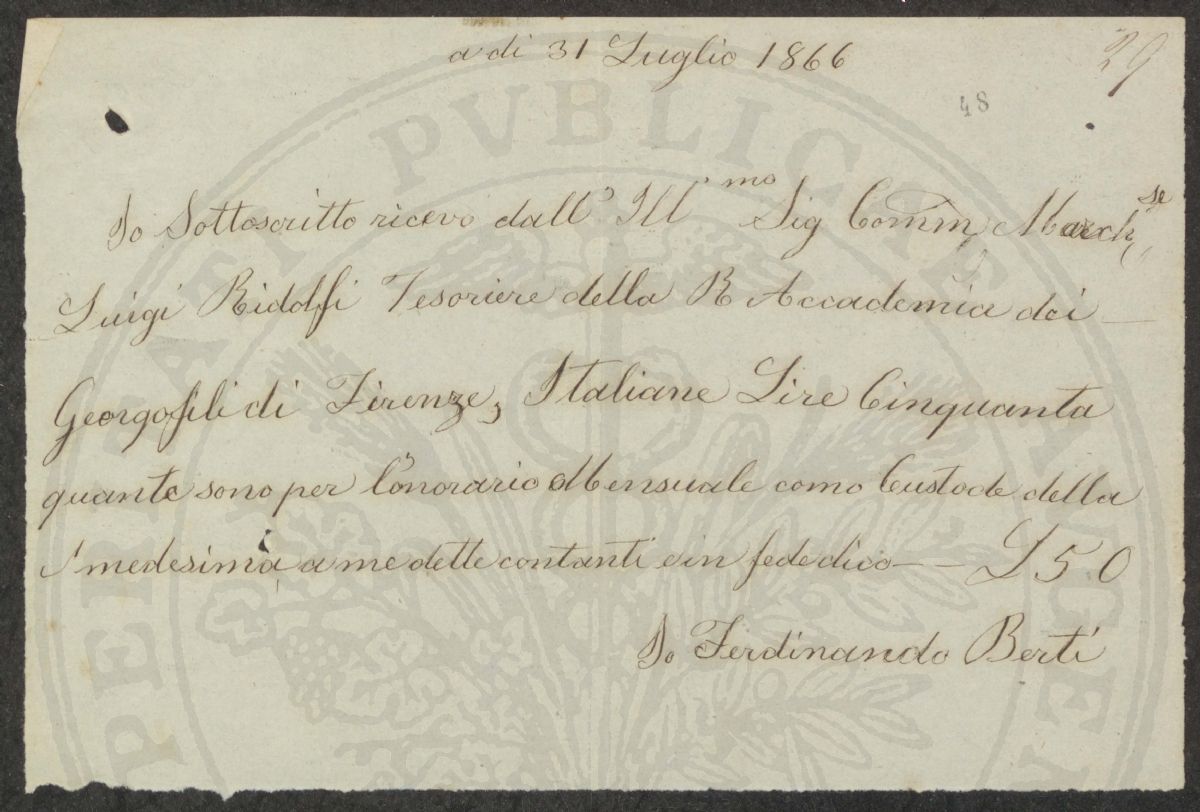 a di 31 Luglio 1866
29
48
Io Sottoscritto ricevo dall' Ill.mo Sig Comm March.se
Luigi Ridolfi Tesoriere della R Accademia dei —
Georgofili di Firenze, Italiane Lire Cinquanta
quante sono per l'onorario Mensuale como Custode della
medesima a me dette contanti e in fede dico — — L 50
Io Ferdinando Berti
PROSPERITATI PVBLICAE AVGENDAE